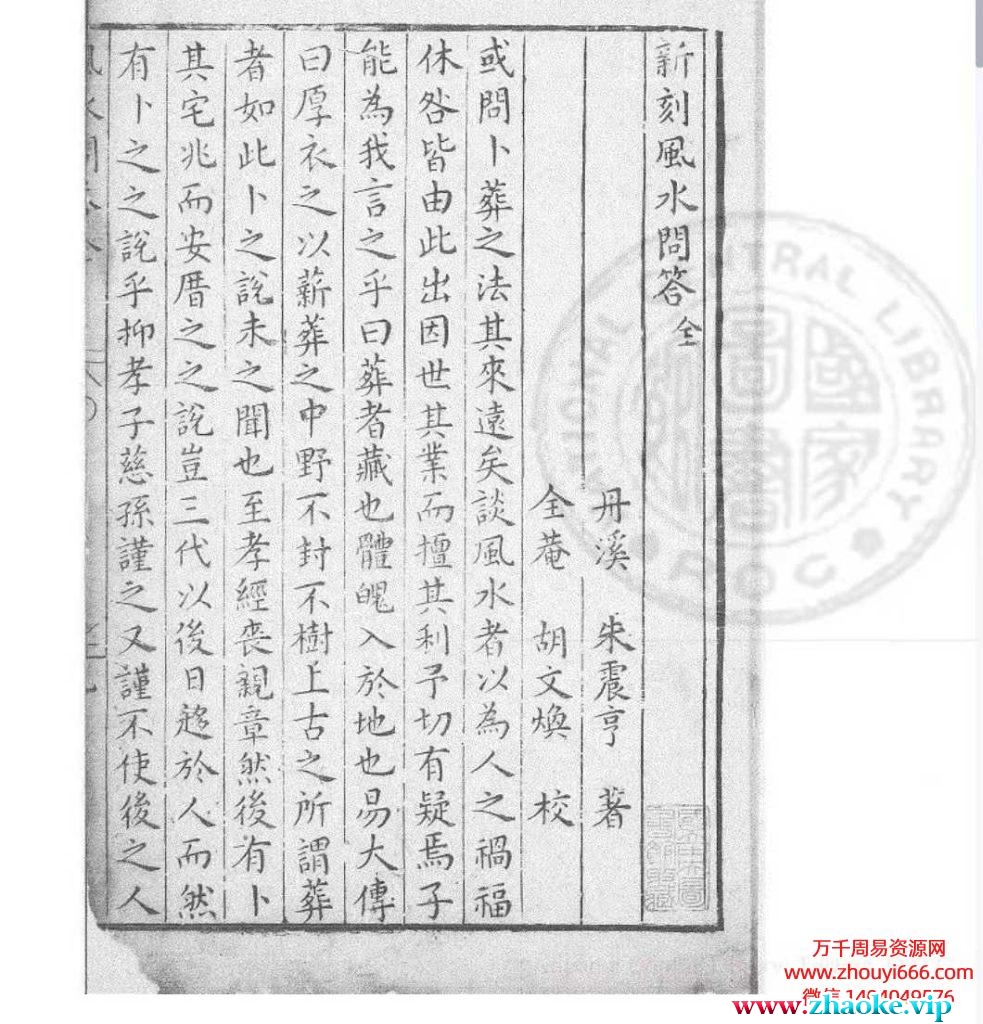 新刻風水問答全
丹溪 朱震亨 著
全菴 胡文煥 校
或問卜葬之法其來遠矣談風水者以為人之禍福
休咎皆由此出因世其業而擅其利予切有疑焉子
能為我言之乎曰葬者藏也體魄入於地也易大傳
曰厚衣之以薪葬之中野不封不樹上古之所謂葬
者如此卜之說未之聞也至孝經喪親章然後有卜
其宅兆而安厝之之說豈三代以後日趍於人而然
有卜之之說乎抑孝子慈孫謹之又謹不使後之人
NATIONAL CENTRAL LIBRARY
ROC
國家圖書
万千周易资源网
www.zhouyi666.com
微信 1464049576
www.zhaoke.vip